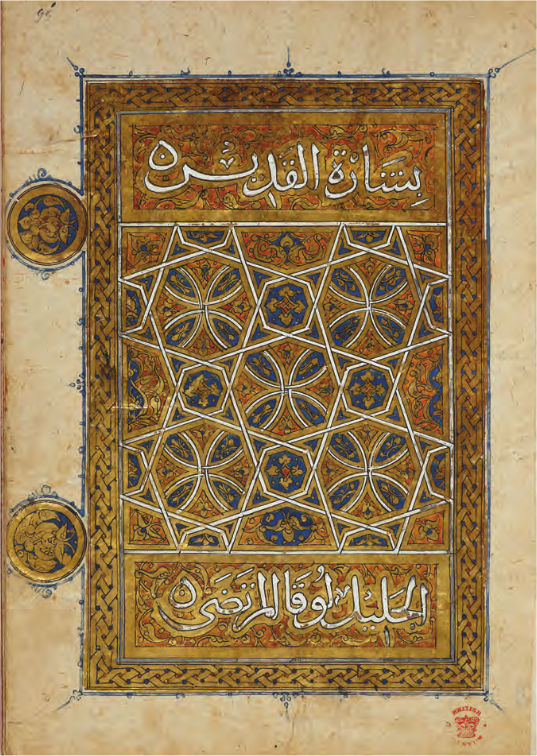 بشارة القديس
الجليل لوقا المرتضى
BRITISH